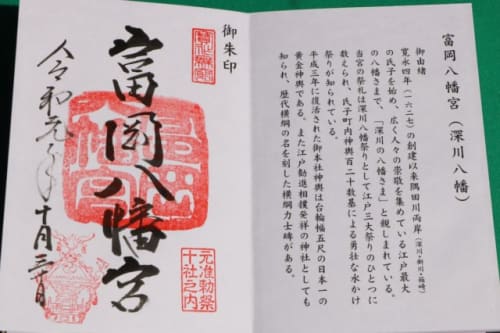 富岡八幡宮（深川八幡）
御由緒
寛永四年（一六二七）の創建以来隅田川両岸（深川・新川・箱崎）
の氏子を始め、広く人々の崇敬を集めている江戸最大
の八幡さまで、「深川の八幡さま」と親しまれている。
当宮の祭礼は深川八幡祭りとして江戸三大祭りのひとつに
数えられ、氏子町内神輿百二十数基による勇壮な水かけ
祭りが知られている。
平成三年に復活された御本社神輿は台輪幅五尺の日本一の
黄金神輿である。また江戸勧進相撲発祥の神社としても
知られ、歴代横綱の名を刻した横綱力士碑がある。
御朱印
富岡八幡宮
元准勅祭
十社之内
令和元年十月三十日